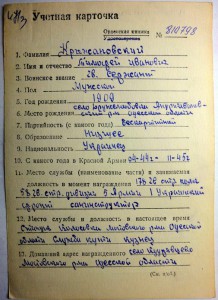 Учетная карточка
Орденская книжка № 810798
1. Фамилия Крисановский
2. Имя и отчество Тимофей Иванович
3. Воинское звание гв. сержант
4. Пол Мужской
5. Год рождения 1909
6. Место рождения село
рай он Одесской области
7. Партийность (с какого года) беспартийный
8. Образование Низшее
9. Национальность Украинец
10. С какого года в Красной Армии 04-44г - 11-45г
11. Место службы (наименование части) и занимаемая
должность в момент награждения 175 гв. стр. полк
58 гв. стр. дивизия 5 Армии 1 Украинский
фронт санинструктор
12. Место службы и должность в настоящее время
района Одесской
области кузнец
13. Домашний адрес награжденного село
района Одесской области
(См. на об.)